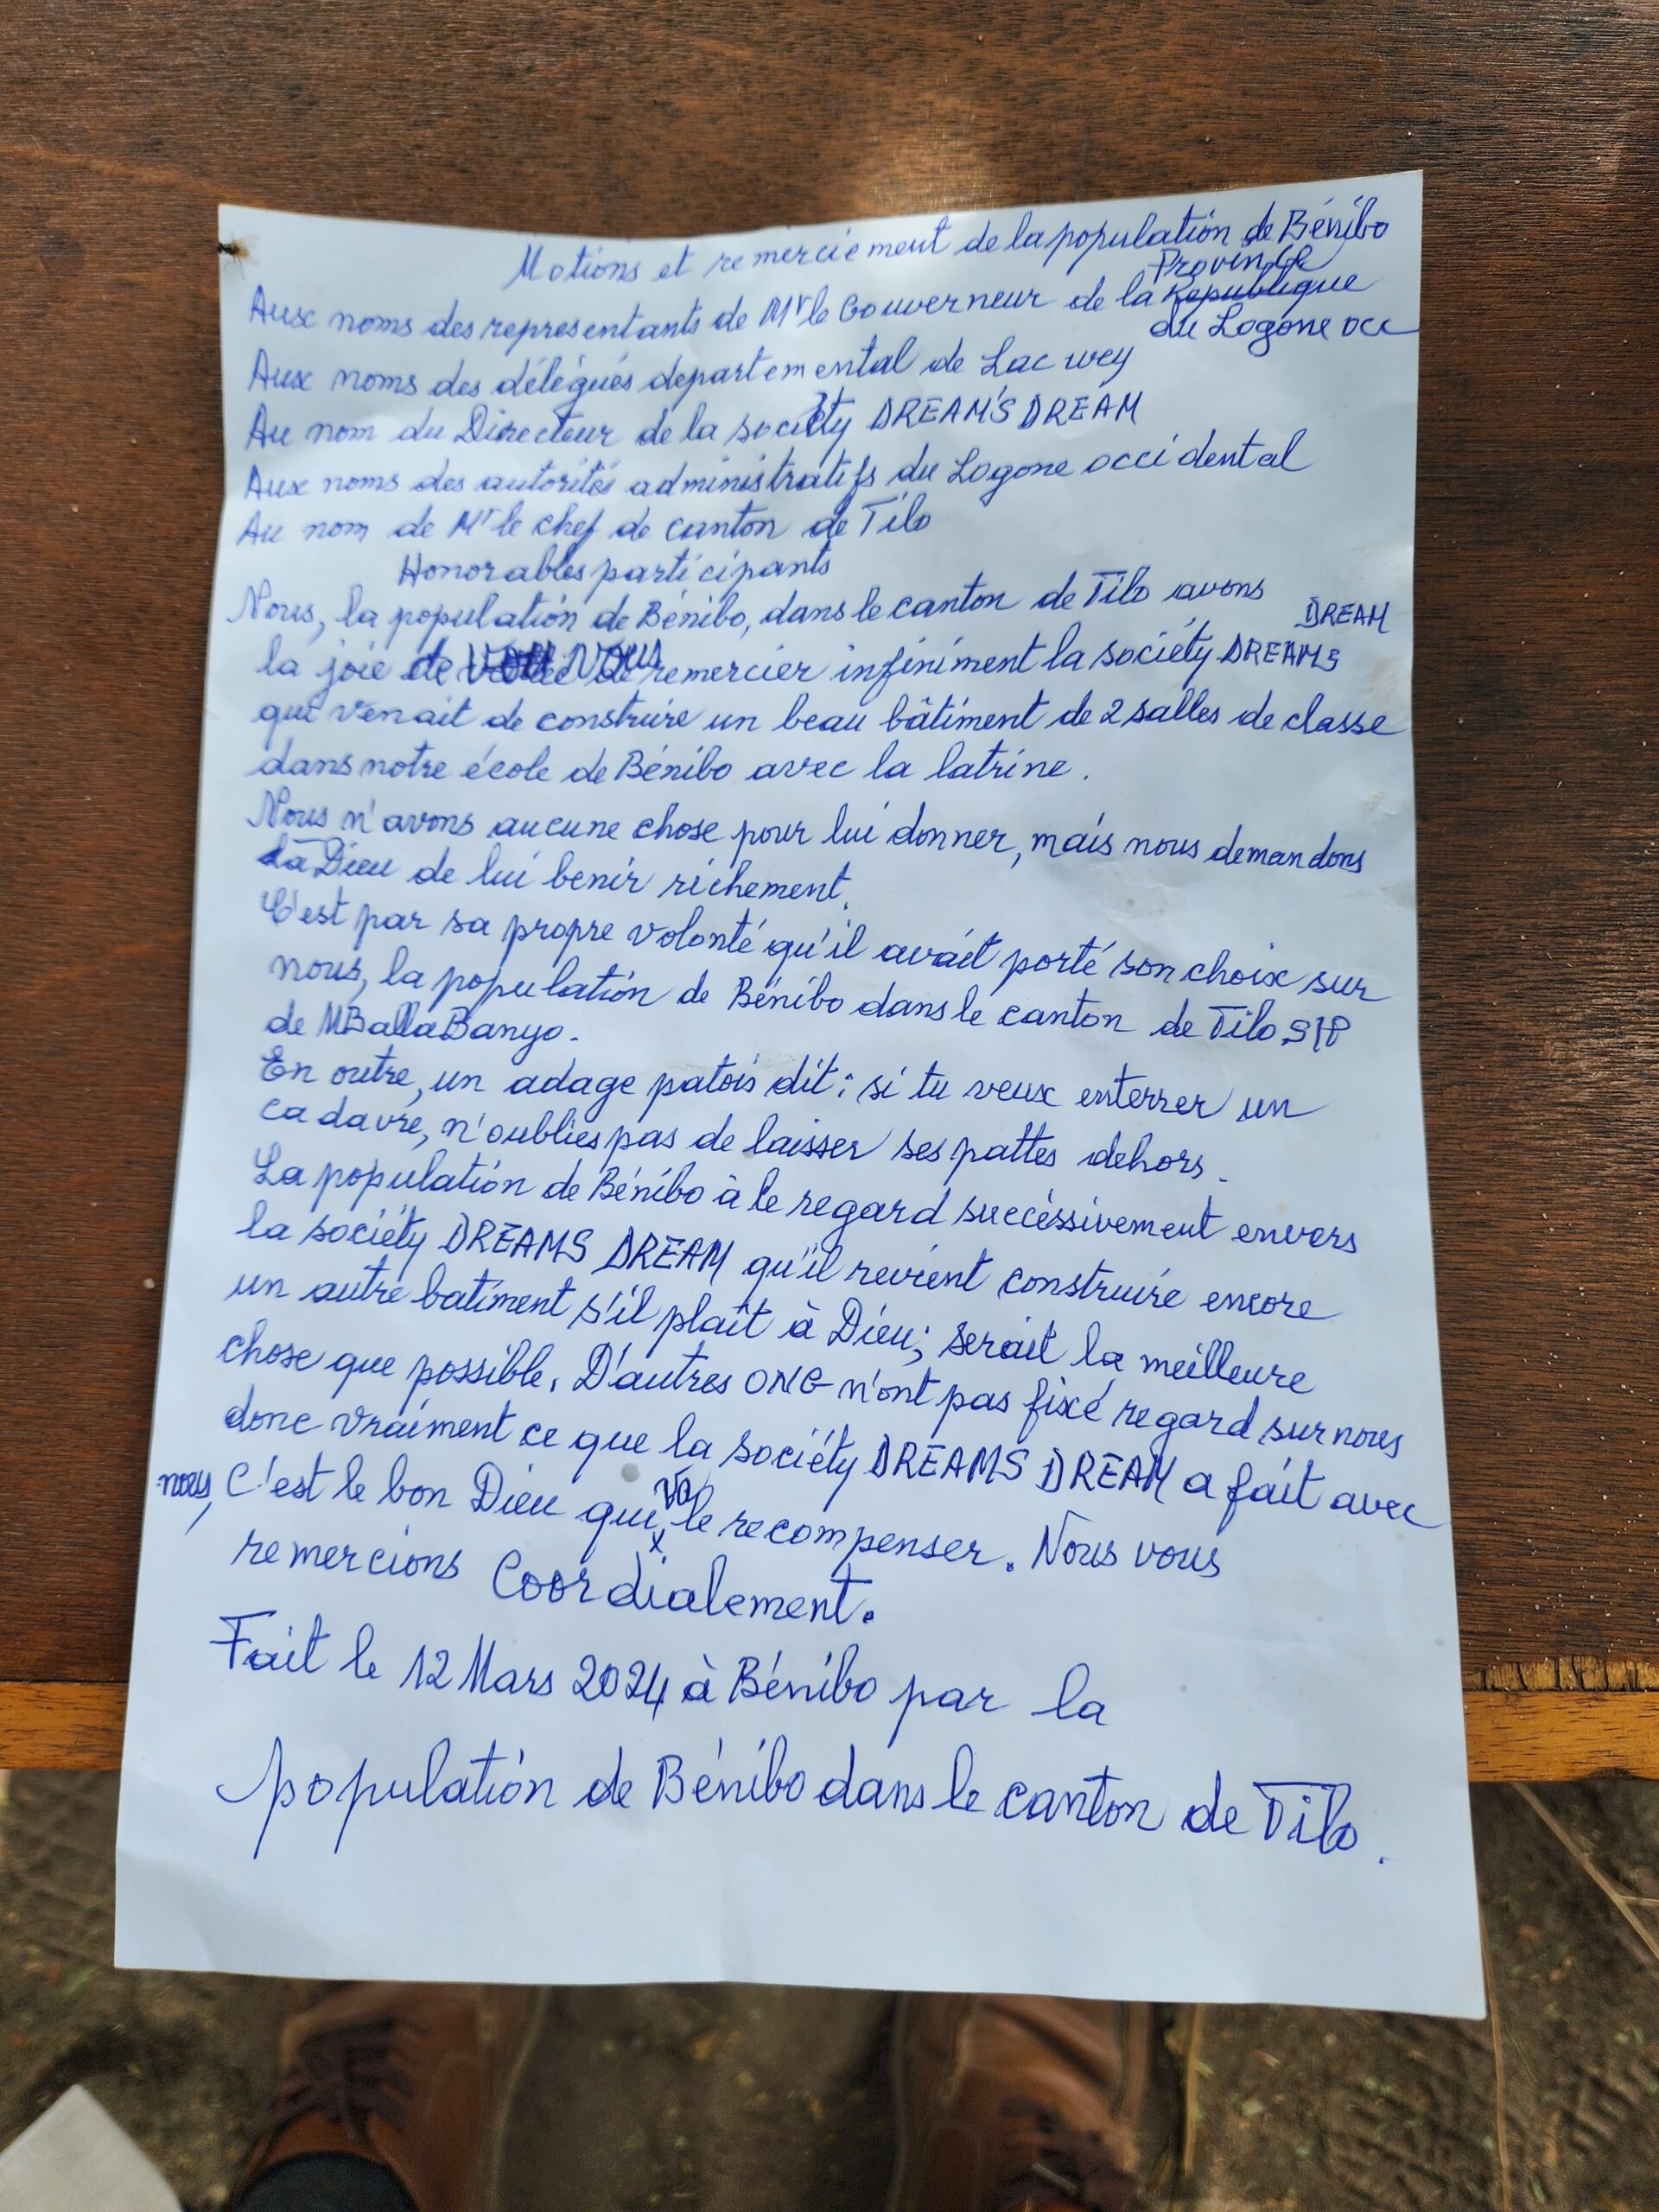 Motions et remerciement de la population de Bénibo
Aux noms des representants de Mr le Gouverneur de la Province
du Logone occ
Aux noms des délégués departemental de Lac wey
Au nom du Directeur de la society DREAM'S DREAM
Aux noms des autorités administratifs du Logone occidental
Au nom de Mr le chef de canton de Tilo
Honorables participants
Nous, la population de Bénibo, dans le canton de Tilo avons
la joie de remercier infiniment la sociéty DREAMS DREAM
qui venait de construire un beau bâtiment de 2 salles de classe
dans notre école de Bénibo avec la latrine.
Nous n'avons aucune chose pour lui donner, mais nous demandons
à Dieu de lui benir richement.
C'est par sa propre volonté qu'il avait porté son choix sur
nous, la population de Bénibo dans le canton de Tilo S/P
de MBallaBanyo.
En outre, un adage patois dit : si tu veux enterrer un
cadavre, n'oublies pas de laisser ses pattes dehors.
La population de Bénibo à le regard succéssivement envers
la sociéty DREAMS DREAM qu'il revient construire encore
un autre batiment s'il plaît à Dieu; serait la meilleure
chose que possible. D'autres ONG n'ont pas fixé regard sur nous
donc vraiment ce que la sociéty DREAMS DREAM a fait avec
nous, C'est le bon Dieu qui va le recompenser. Nous vous
remercions Coordialement.
Fait le 12 Mars 2024 à Bénibo par la
population de Bénibo dans le canton de Tilo.